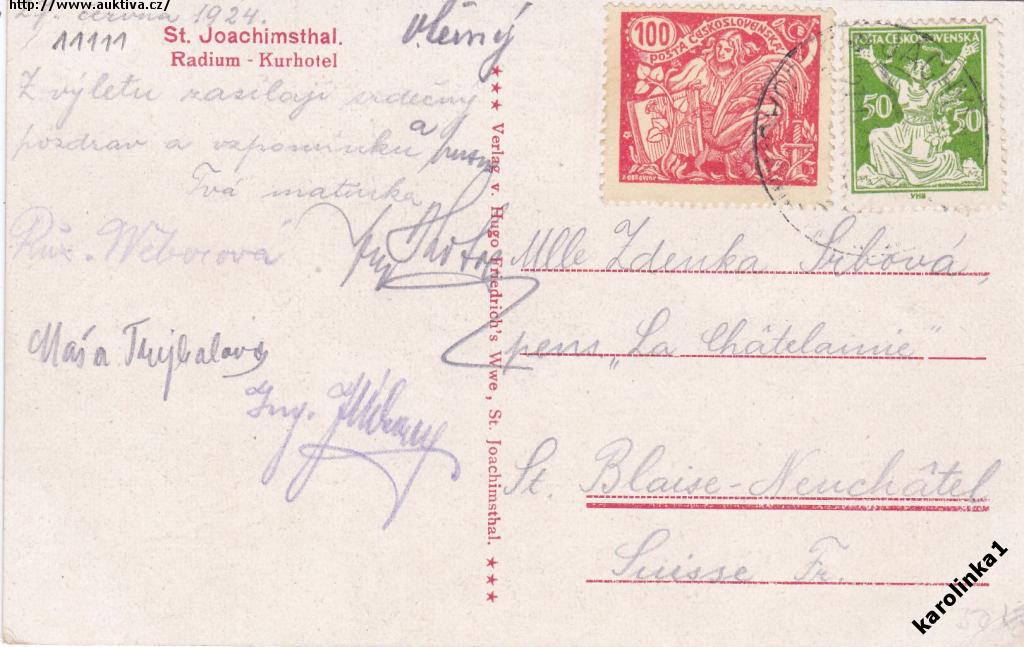 http://www.auktiva.cz/
29. června 1924.
11111
St. Joachimsthal.
Radium - Kurhotel
Z výletu zasílají srdečný
pozdrav a vzpomínku a
Tvá matinka
Růž. Weberová
Máša Trejbalová
Ing.
★★★ Verlag v. Hugo Friedrich's Wwe, St. Joachimsthal. ★★★
100
POŠTA ČESKOSLOVENSKÁ
POŠTA ČESKOSLOVENSKÁ
50 50
Mlle Zdenka Srbová,
pens. „La Châtelainie"
St. Blaise-Neuchâtel
Suisse Fr.
karolinka1